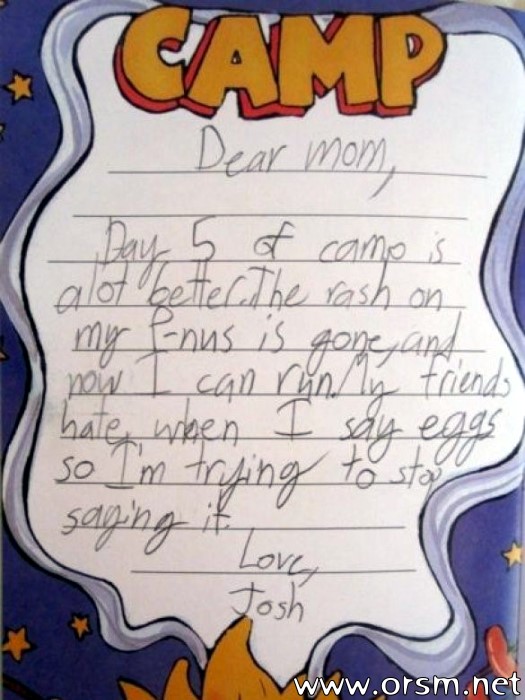 CAMP
Dear mom,
Day 5 of camp is
alot better. The rash on
my P-nus is gone, and
now I can run. My friends
hate when I say eggs
so I'm trying to stop
saying it.
Love,
Josh
www.orsm.net